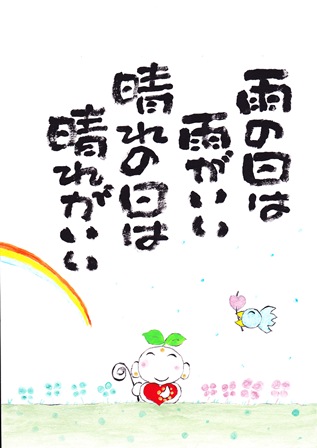 雨の日は
雨がいい
晴れの日は
晴れがいい